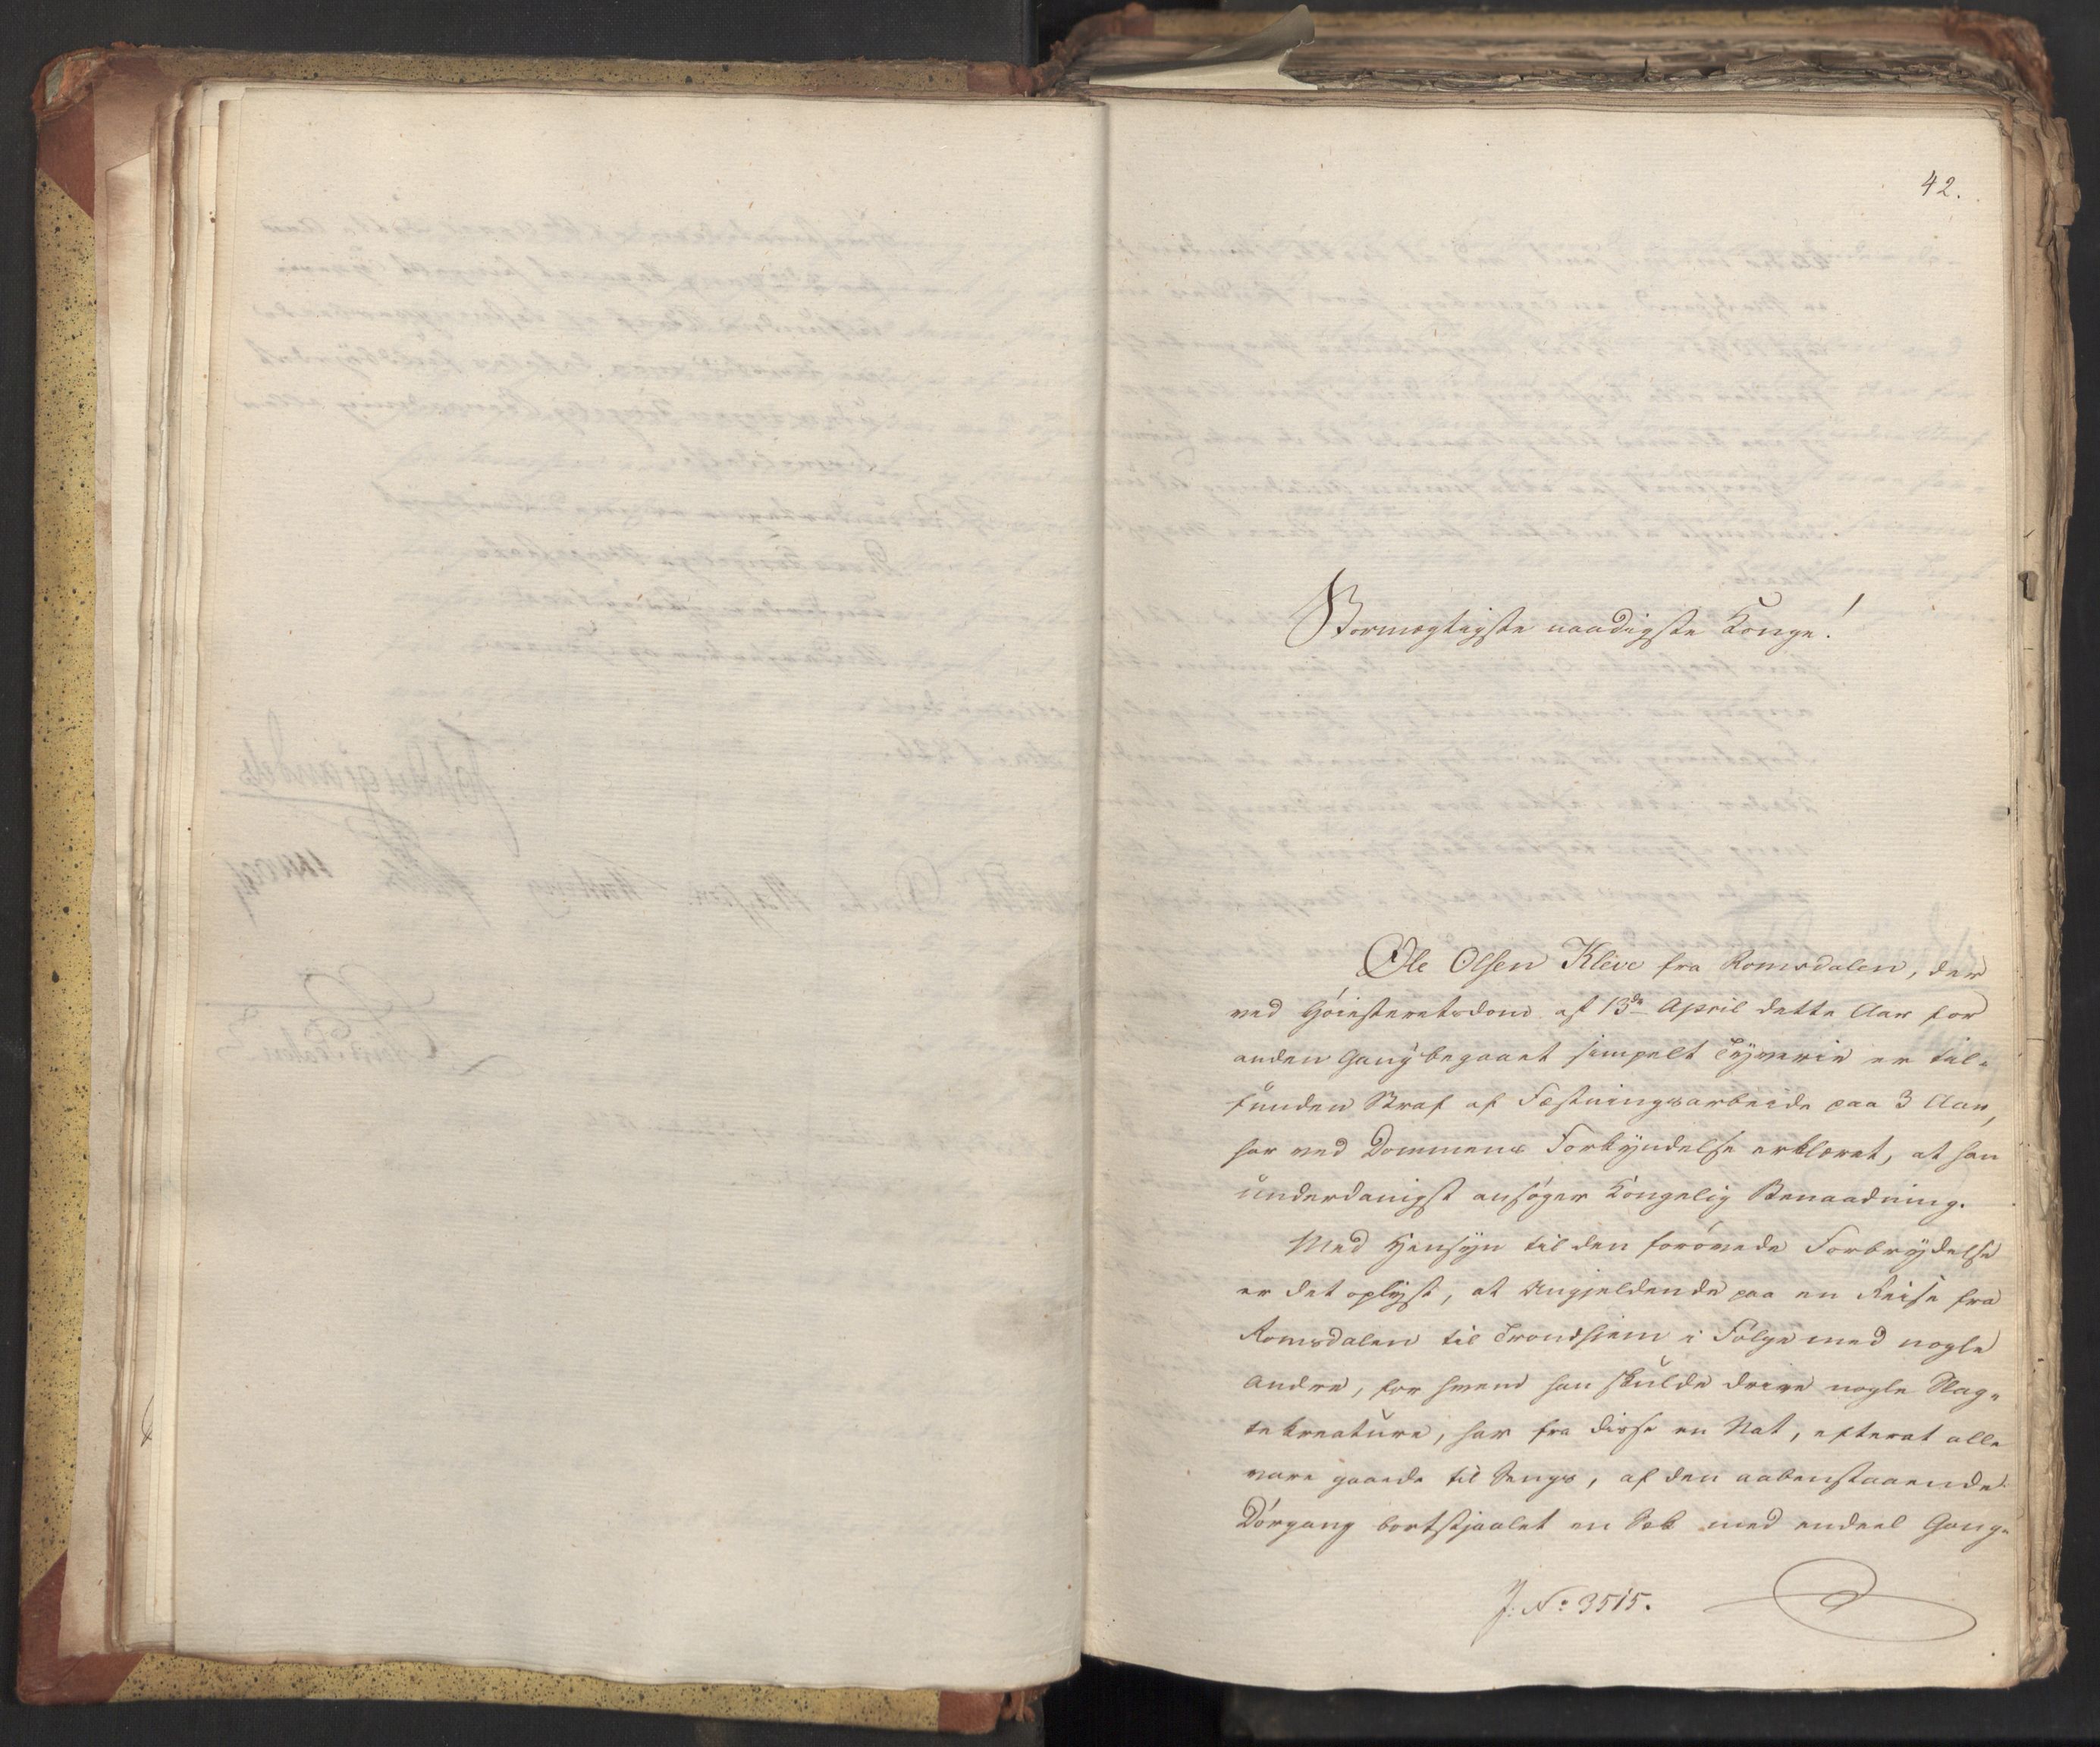 42.
Stormægtigste naadigste Konge!
Ole Olsen Kleve fra Romsdalen, der
ved Høiesteretsdom af 13de April dette Aar for
anden Gang begaaet simpelt Tyverie er til-
funden Straf af Fæstningsarbeide paa 3 Aar,
har ved Dommens Forkyndelse erklæret, at han
underdanigst ansøger Kongelig Benaadning.
Med Hensyn til den forøvede Forbrydelse
er det oplyst, at Angjeldende paa en Reise fra
Romsdalen til Trondhjem i Følge med nogle
andre, for hvem han skulde drive nogle Slag-
tekreature, har fra disse en Nat, efterat alle
vare gaaede til Sengs, af den aabenstaaende
Dørgang bortstjaalet en Sæk med endeel Gang-
J: No 3515.